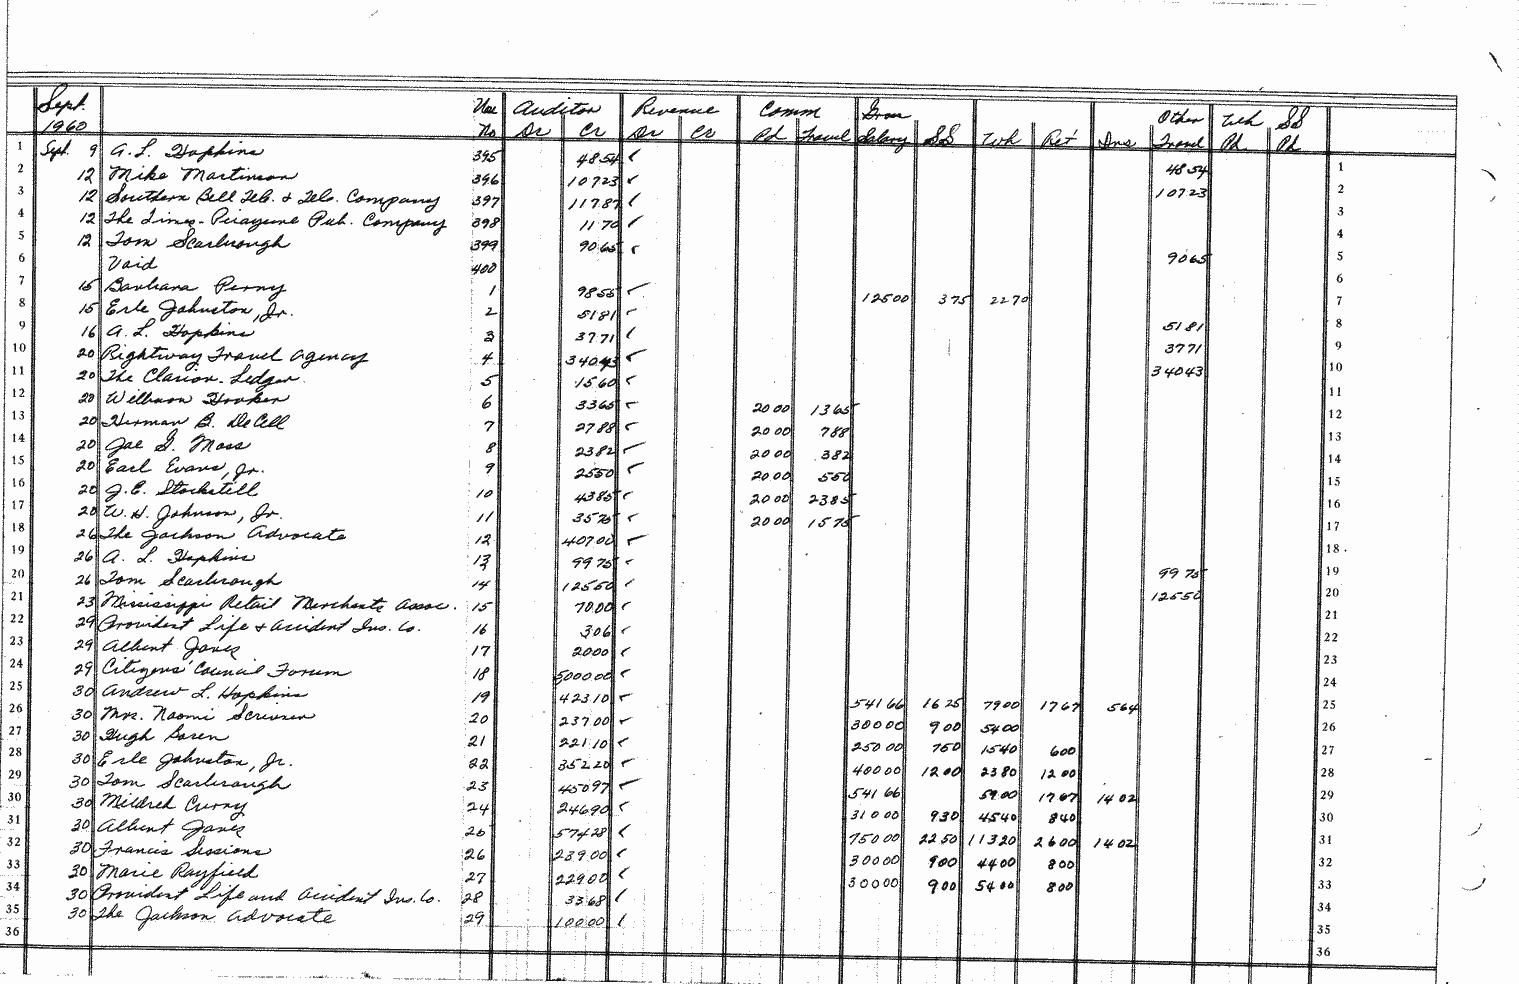 Sept. Vou Auditor Revenue Comm Gross Other Wh SS
1960 No Dr Cr Dr Cr Pd Travel Salary SS Wh Ret Ins Travel Pd Pd
1 Sept. 9 A. L. Hopkins 395 48 54 ✓ 48 54 1
2 12 Mike Martinson 396 107 23 ✓ 107 23 2
3 12 Southern Bell Tel. & Tel. Company 397 117 87 ✓ 3
4 12 The Times-Picayune Pub. Company 398 11 70 ✓ 4
5 12 Tom Scarbrough 399 90 65 ✓ 90 65 5
6 Void 400 6
7 15 Barbara Perry 1 98 55 ✓ 125 00 3 75 22 70 7
8 15 Erle Johnston, Jr. 2 51 81 ✓ 51 81 8
9 16 A. L. Hopkins 3 37 71 ✓ 37 71 9
10 20 Rightway Travel Agency 4 340 43 ✓ 340 43 10
11 20 The Clarion-Ledger 5 15 60 ✓ 11
12 20 Wilburn Hooker 6 33 65 ✓ 20 00 13 65 12
13 20 Herman B. DeCell 7 27 88 ✓ 20 00 7 88 13
14 20 Joe G. Moss 8 23 82 ✓ 20 00 3 82 14
15 20 Earl Evans, Jr. 9 25 50 ✓ 20 00 5 50 15
16 20 J. E. Stockstill 10 43 85 ✓ 20 00 23 85 16
17 20 W. H. Johnson, Jr. 11 35 75 ✓ 20 00 15 75 17
18 26 The Jackson Advocate 12 407 00 ✓ 18
19 26 A. L. Hopkins 13 99 75 ✓ 99 75 19
20 26 Tom Scarbrough 14 125 50 ✓ 125 50 20
21 23 Mississippi Retail Merchants Assoc. 15 70 00 ✓ 21
22 29 Provident Life & Accident Ins. Co. 16 3 06 ✓ 22
23 29 Albert Jones 17 20 00 ✓ 23
24 29 Citizens' Council Forum 18 5000 00 ✓ 24
25 30 Andrew L. Hopkins 19 423 10 ✓ 541 66 16 25 79 00 17 67 5 64 25
26 30 Mrs. Naomi Scrivner 20 237 00 ✓ 300 00 9 00 54 00 26
27 30 Hugh Boren 21 221 10 ✓ 250 00 7 50 15 40 6 00 27
28 30 Erle Johnston, Jr. 22 352 20 ✓ 400 00 12 00 23 80 12 00 28
29 30 Tom Scarbrough 23 450 97 ✓ 541 66 59 00 17 67 14 02 29
30 30 Mildred Curry 24 246 90 ✓ 310 00 9 30 45 40 8 40 30
31 30 Albert Jones 25 574 28 ✓ 750 00 22 50 113 20 26 00 14 02 31
32 30 Francis Sessions 26 239 00 ✓ 300 00 9 00 44 00 8 00 32
33 30 Marie Rayfield 27 229 00 ✓ 300 00 9 00 54 00 8 00 33
34 30 Provident Life and Accident Ins. Co. 28 33 68 ✓ 34
35 30 The Jackson Advocate 29 100 00 ✓ 35
36 36